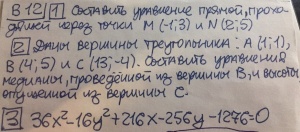 В 12 1 Составить уравнение прямой, прохо-
дящей через точки M (-1;3) и N (2;5)
2 Даны вершины треугольника: A (1;1),
B (4;5) и C (13;-4). Составить уравнения
медианы, проведённой из вершины B, и высоты
опущенной из вершины C.
3 36x²-16y²+216x-256y-1276=0